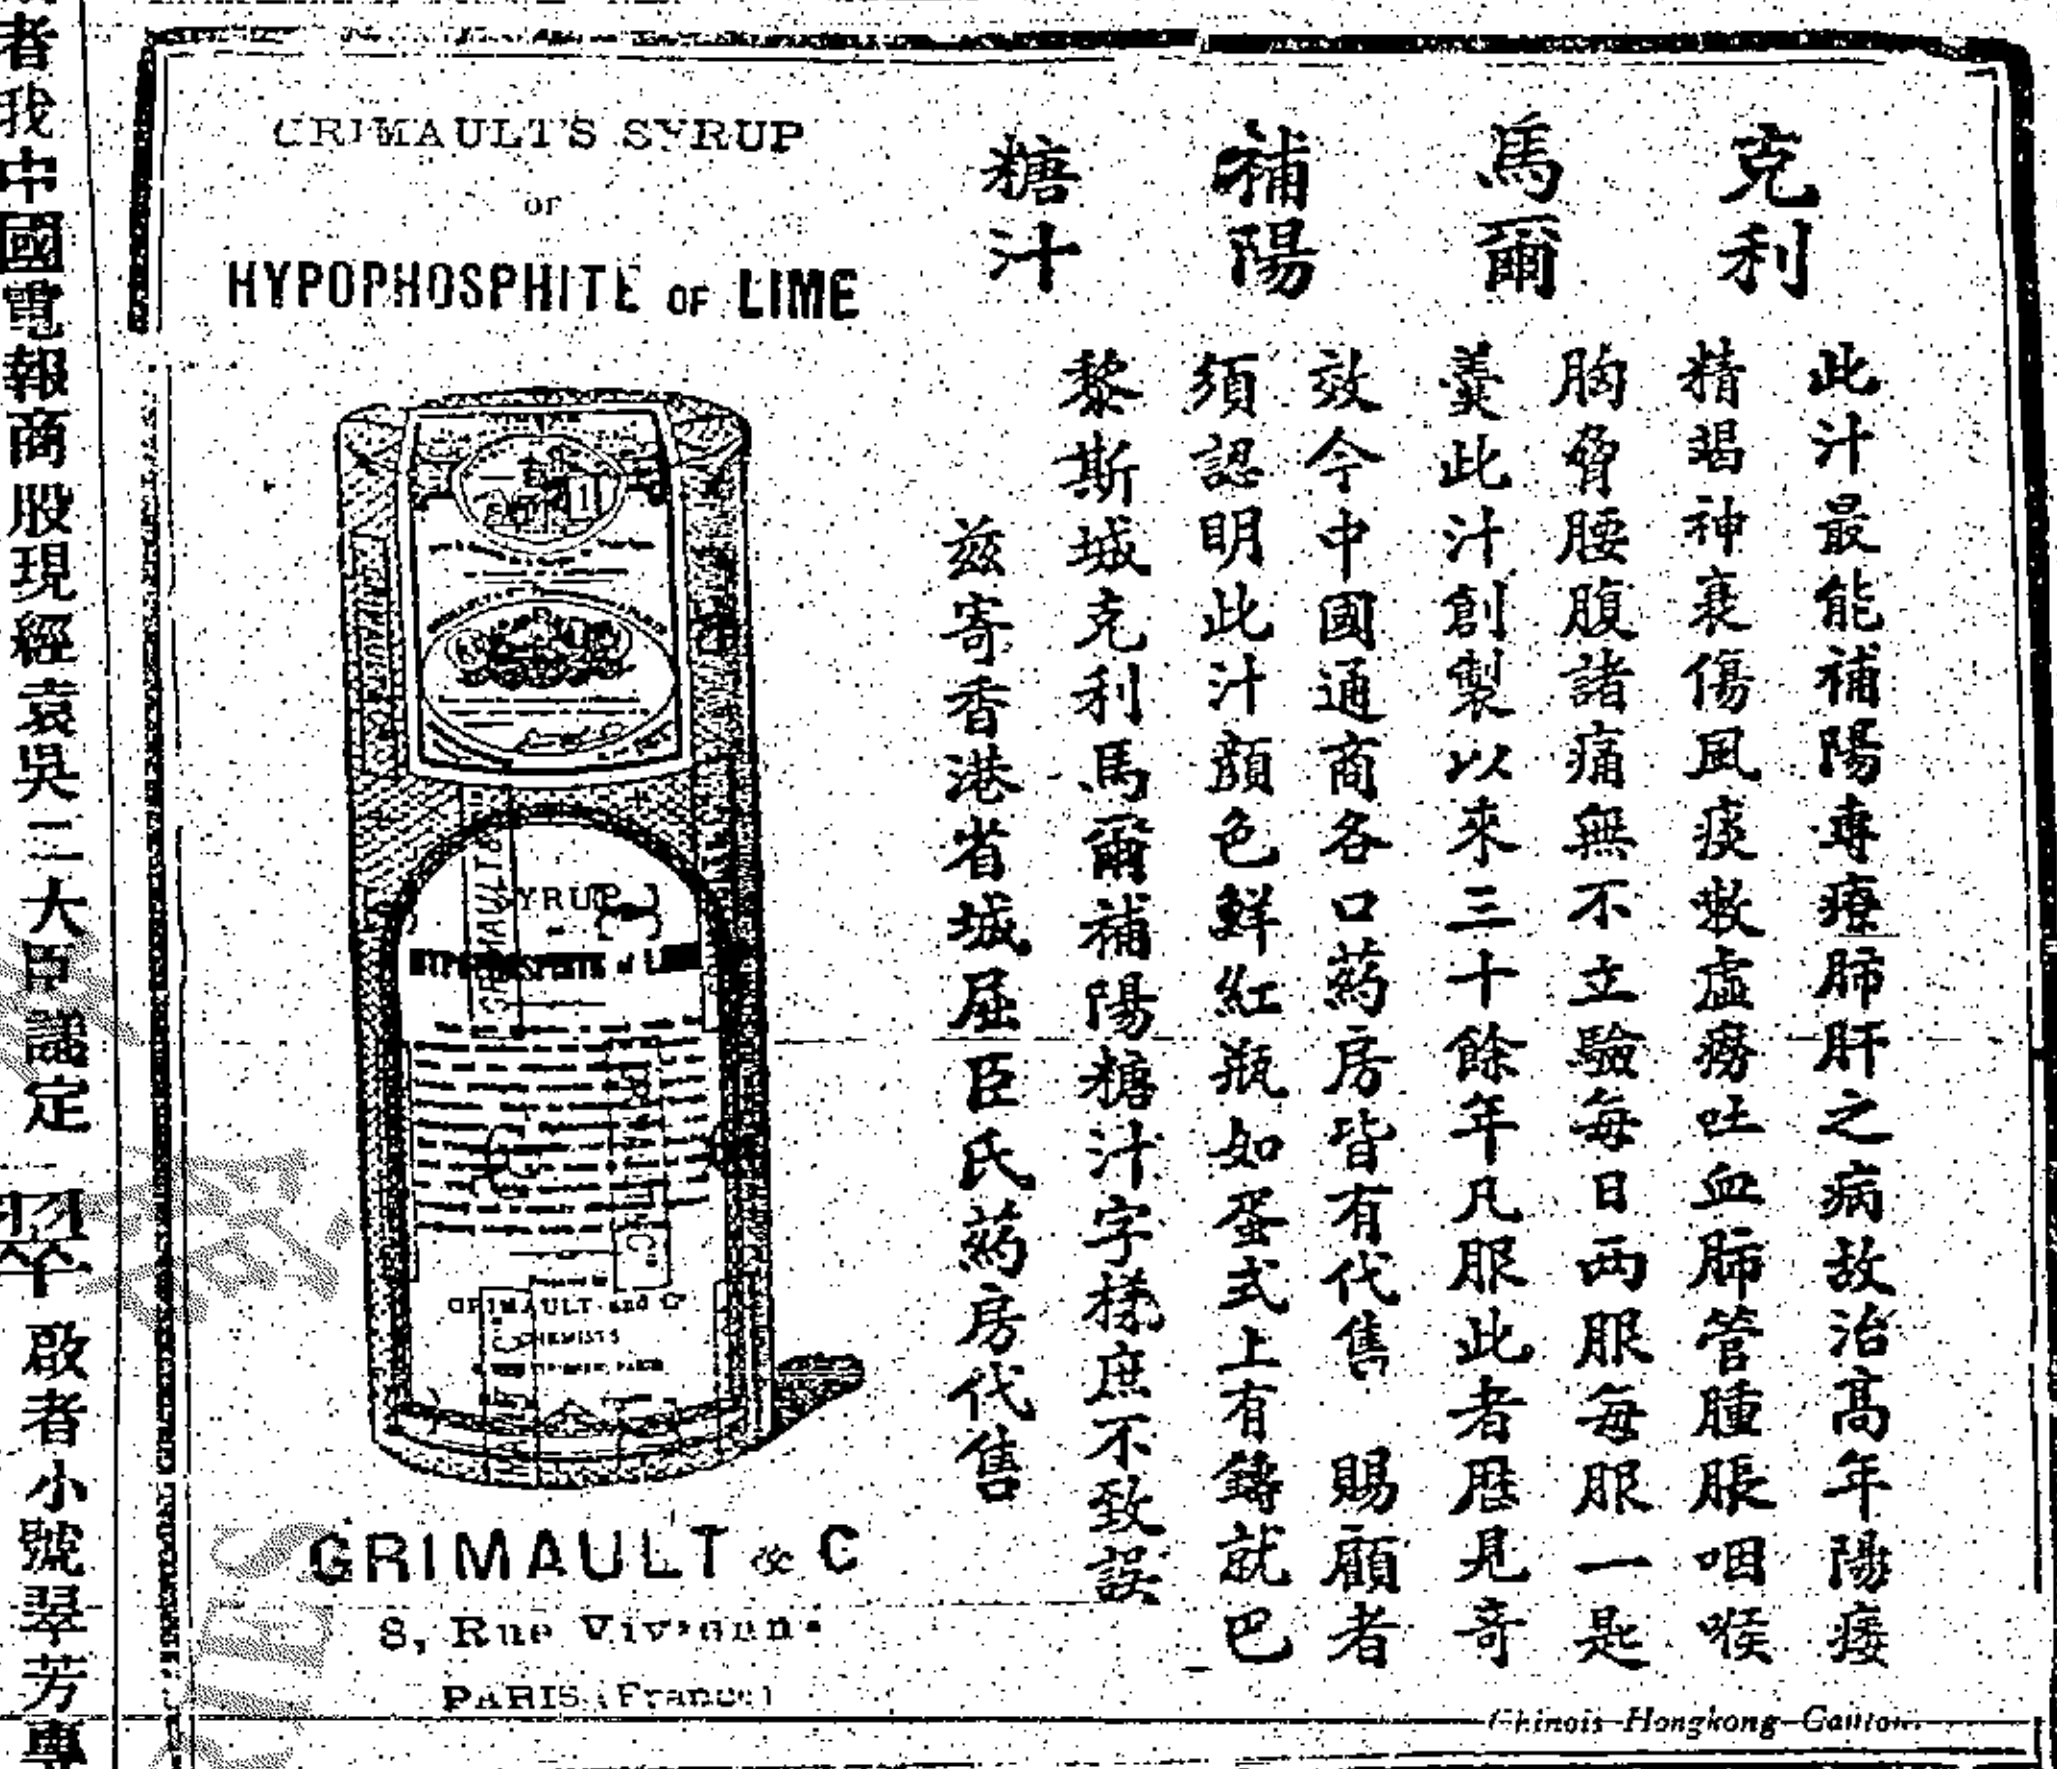 克利馬爾補陽糖汁
此汁最能補陽專療肺肝之病故治高年陽痿
精竭神衰傷風痰嗽虛癆吐血肺管腫脹咽喉
胸脅腰腹諸痛無不立驗每日兩服每服一匙
羹此汁創製以來三十餘年凡服此者歷見奇
效今中國通商各口葯房皆有代售 賜顧者
須認明此汁顏色鮮紅瓶如蛋式上有鑄就巴
黎斯城克利馬爾補陽糖汁字樣庶不致誤
茲寄香港省城屈臣氏葯房代售
GRIMAULT'S SYRUP
OF
HYPOPHOSPHITE OF LIME
SYRUP
HYPOPHOSPHITE of LIME
GRIMAULT and Co
CHEMISTS
GRIMAULT & C
8, Rue Vivienne
PARIS (France)
Chinois Hongkong Canton
者我中國電報商股現經袁吳二大臣議定
啟者小號翠芳專